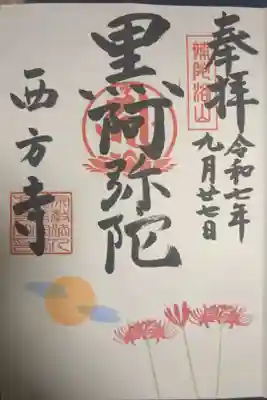 奉拝
令和七年
九月廿七日
補陀洛山
黒阿弥陀
西方寺